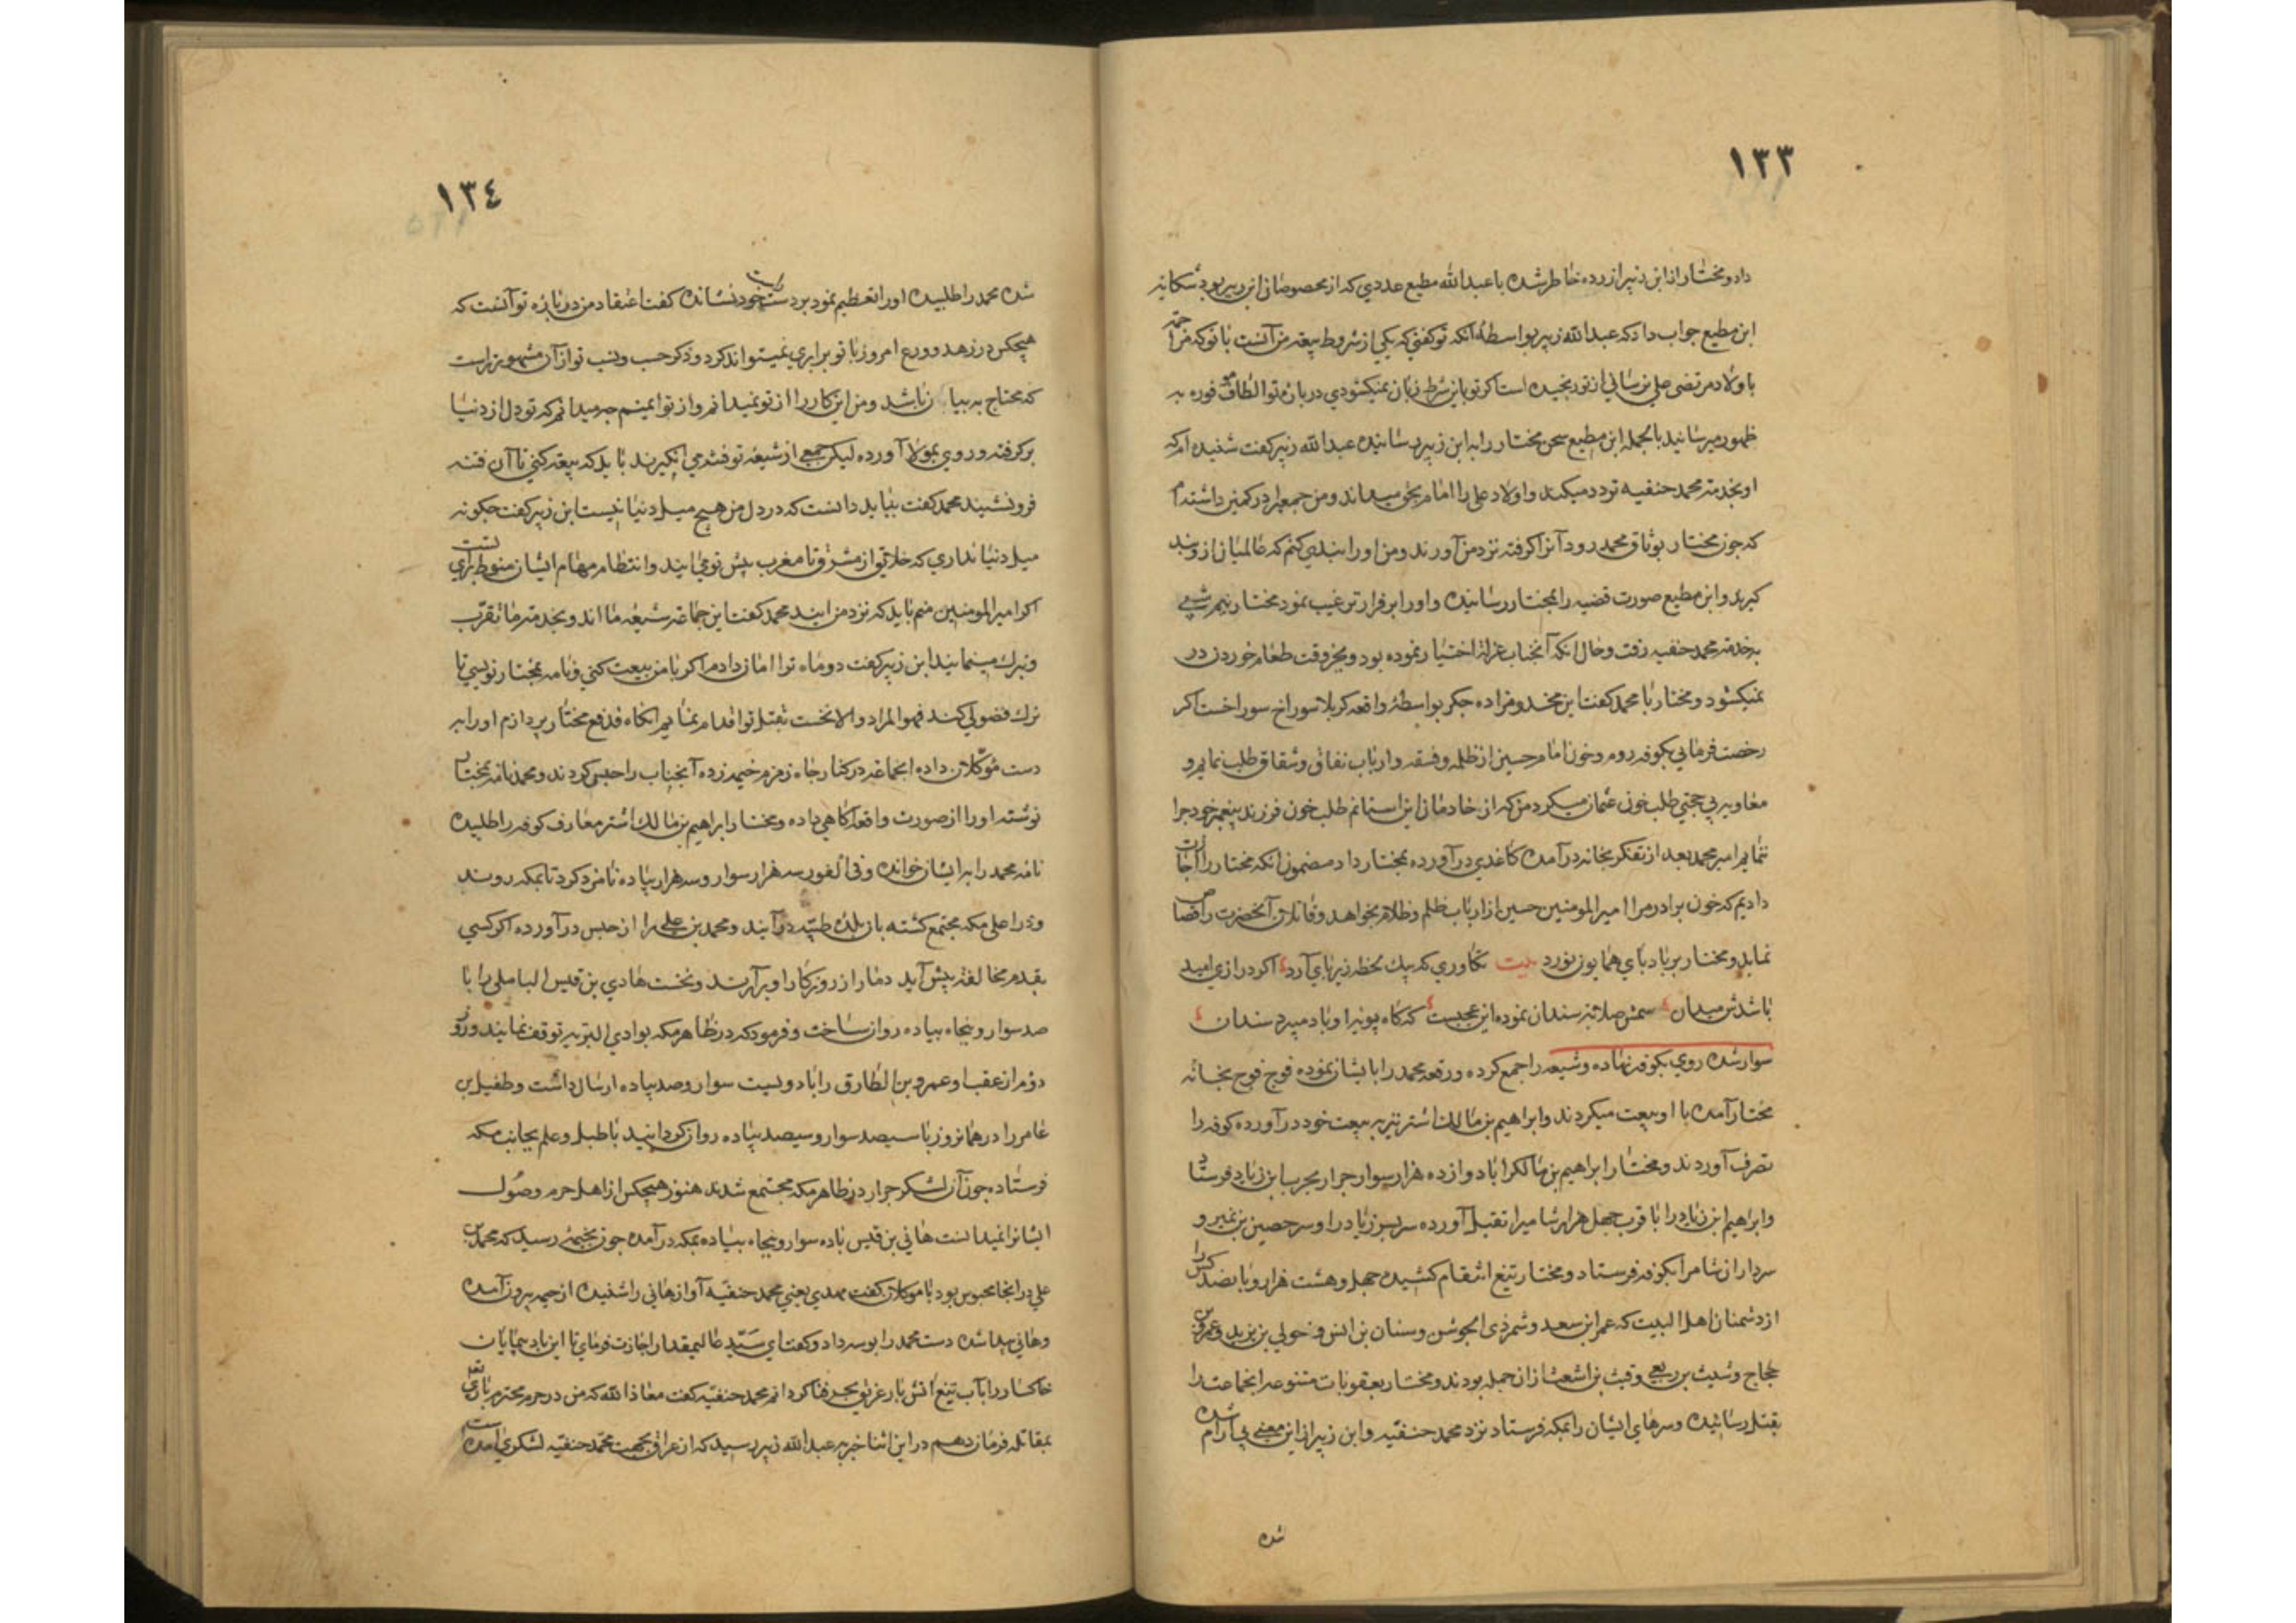 ١٣٣
داد و مختار از ابن زبیر ازرده خاطر شده با عبدالله مطیع عددی که از مخصوصان ابن زبیر بود شکایه
ابن مطیع جواب داد که عبدالله زبیر بواسطهٔ انکه تو کفتی که یکی از شروط بیعة من آنست با تو که مرا
با ولاد مرتضی علی نرسانی از تو رنجیده است اکر تو باین شرط زبان نمیکشودی در بارهٔ تو الطاف فوره به
ظهور میرسانید بالجمله ابن مطیع سخن مختار را به ابن زبیر رسانیده عبدالله زبیر کفت شنیده ام که
او بخدمة محمد حنفیه تردد میکند و اولاد علی را امام بحق میداند و من جمعیرا در کمین داشته ام
که چون مختار بوثاق محمد رود آنرا کرفته نزد من آورند و من او را بندی کنم که عالمیان ازو پند
کیرند و ابن مطیع صورت قضیه را بمختار رسانیده و او را بر فرار ترغیب نمود مختار نیم شبی
به خدمة محمد حنفیه رفت و حال انکه آنجناب عزلة اختیار نموده بود و بجز وقت طعام خوردن در
نمیکشود و مختار با محمد کفت این مخدوم زاده جکر بواسطهٔ واقعه کربلا سوراخ سوراخست اکر
رخصت فرمایی بکوفه روم و خون امام حسین از ظلمه و فسقه و ارباب نفاق و شقاق طلب نمایم و
معاویه بی حجتی طلب خون عثمان میکرد من که از خادمان این استانم طلب خون فرزند پیغمبر خود چرا
ننمایم امیر محمد بعد از تفکر بخانه در آمده کاغدی در آورده بمختار داد مضمون انکه مختار را اجازت
دادیم که خون برادرم را امیر المومنین حسین از ارباب ظلم و ظلام بخواهد و قاتلان آنحضرت را قصاص
نماید و مختار بر باد پای همایون نورد بیت تکاوری که بیک لحظه زیر پای آرد اکر درازی امید
باشدش میدان سمش صلابة سندان نموده این عجبست که کاه پویه را و باد میبرد سندان
سوار شده روی بکوفه نهاده و شیعه را جمع کرده و رقعه محمد را بایشان نموده فوج فوج بخانه
مختار آمده با او بیعت میکردند و ابراهیم بن مالک اشتر نیز به بیعت خود در آورده کوفه را
تصرف آوردند و مختار ابراهیم بن مالک را با دوازده هزار سوار جرار بحرب ابن زیاد فرستاد
و ابراهیم ابن زیاد را با قرب چهل هزار شامیرا بقتل آورده سر پسر زیاد را و سر حصین بن نمیر و
سرداران شامرا بکوفه فرستاد و مختار تیغ انتقام کشیده چهل و هشت هزار و پانصد کس را
از دشمنان اهل البیت که عمر ابن سعد و شمر ذی الجوشن و سنان بن انس و خولی بن یزید و عمرو بن
حجاج و شیث بن ربعی و قیث بن اشعث از ان جمله بودند و مختار بعقوبات متنوعه انجماعت را
بقتل رسانیده و سرهای ایشان را بمکه فرستاد نزد محمد حنفیه و ابن زبیر از این معنی بی آرام شده
شده
١٣٤
شده محمد را طلبیده او را تعظیم نمود بر دست راست خود نشانده کفت اعتقاد من در بارهٔ تو آنست که
هیچکس در زهد و ورع امروز با تو برابری نمیتواند کرد و ذکر حسب و نسب تو از آن مشهورتر است
که محتاج به بیان باشد و من این کار را از تو نمیدانم و از تو ایمنم چه میدانم که تو دل از دنیا
بر کرفته و روی بمولا آورده لیکن جمعی از شیعهٔ تو فتنه می انکیزند باید که بیعة کنی تا آن فتنه
فرو نشیند محمد کفت بباید دانست که در دل من هیچ میل دنیا نیست ابن زبیر کفت چکونه
میل دنیا نداری که خلایق از مشرق تا مغرب پیش تو می ایند و انتظام مهام ایشان منوط برای تست
اکر امیر المومنین منم باید که نزد من ایند محمد کفت این جماعة شیعهٔ ما اند و بخدمة ما تقرب
و تبرک مینمایند ابن زبیر کفت دو ماه ترا امان دادم اکر با من بیعت کنی و نامه بمختار نویسی تا
ترک فضولی کند فهو المراد والا نخست بقتل تو اقدام نمایم انکاه بدفع مختار پردازم او را به
دست موکلان داده انجماعه در کنار چاه زمزم خیمه زده آنجناب را حبس کردند و محمد نامه بمختار
نوشته او را از صورت واقعه اکاهی داده و مختار ابراهیم بن مالک اشتر معارف کوفه را طلبیده
نامه محمد را به ایشان خوانده و فی الفور سه هزار سوار و سه هزار پیاده نامزد کرد تا بمکه روند
و در اعلی مکه مجتمع کشته باز بلدهٔ طیبه در آیند و محمد بن علی را از حبس در آورده اکر کسی
بقدم مخالفة پیش آید دمار از روزکار او بر آرند و نخست هادی بن قیس الباملی را با
صد سوار و پنجاه پیاده روان ساخت و فرمود که در ظاهر مکه بوادی البریه توقف نمایند و روز
دوم از عقب او عمرو بن الطارق را با دویست سوار و صد پیاده ارسال داشت و طفیل بن
عامر را در همانروز با سیصد سوار و سیصد پیاده روان کردانید با طبل و علم بجانب مکه
فرستاده چون آن لشکر جرار در ظاهر مکه مجتمع شدند هنوز هیچکس از اهل حرم وصول
ایشانرا نمیدانست هانی بن قیس با ده سوار و پنجاه پیاده بمکه در آمده چون بخیمهٔ رسید که محمد بن
علی در انجا محبوس بود با موکلان کفت مهدی یعنی محمد حنفیه آواز هانی را شنیده از خیمه بیرون آمده
و هانی پیدا شده دست محمد را بوسه داد و کفت ای سید عالیمقدار اجازت فرمای تا این باد پیمایان
خاکسار را باب تیغ اتش بار غریق بحر فنا کردانم محمد حنفیه کفت معاذالله که من در حرم محترم باری تع
بمقاتله فرمان دهم در این اثنا خبر به عبدالله زبیر رسید که از عراق بجهت محمد حنفیه لشکری آمده است